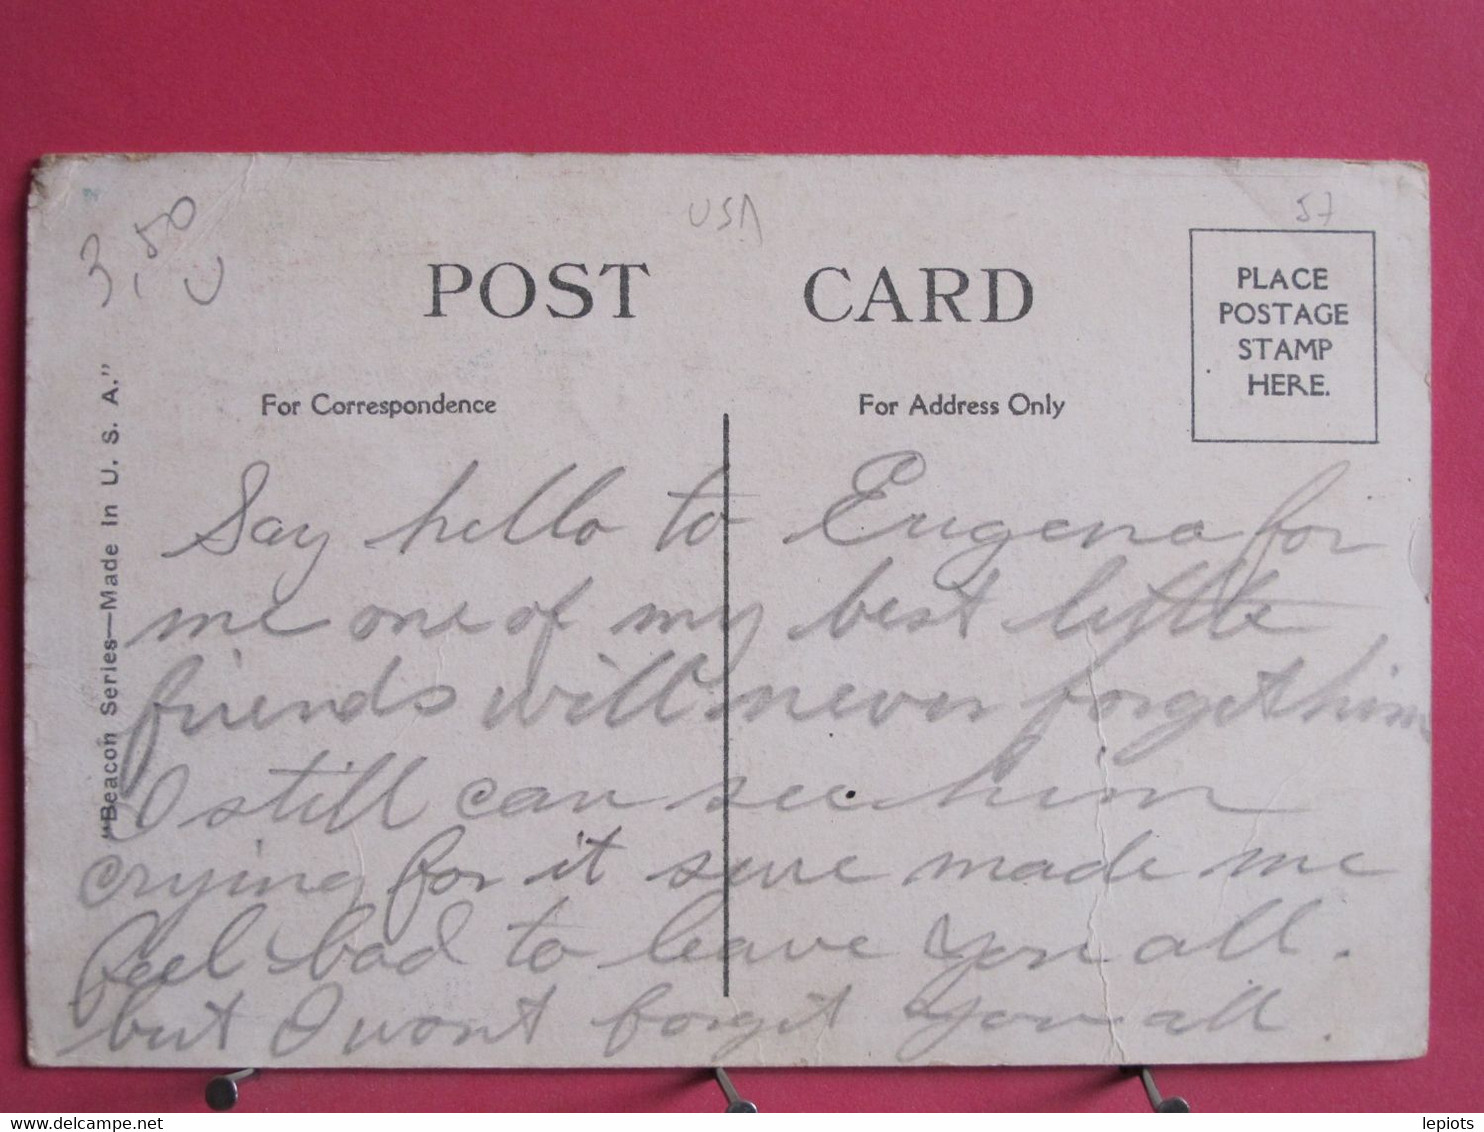 3,50
USA
57
POST CARD
PLACE
POSTAGE
STAMP
HERE.
For Correspondence
For Address Only
"Beacon Series—Made In U. S. A."
Say hello to Eugena for
me one of my best little
friends will never forget him
I still can see him
crying for it sure made me
feel bad to leave you all.
but I wont forget you all.
delcampe.net
lepiots